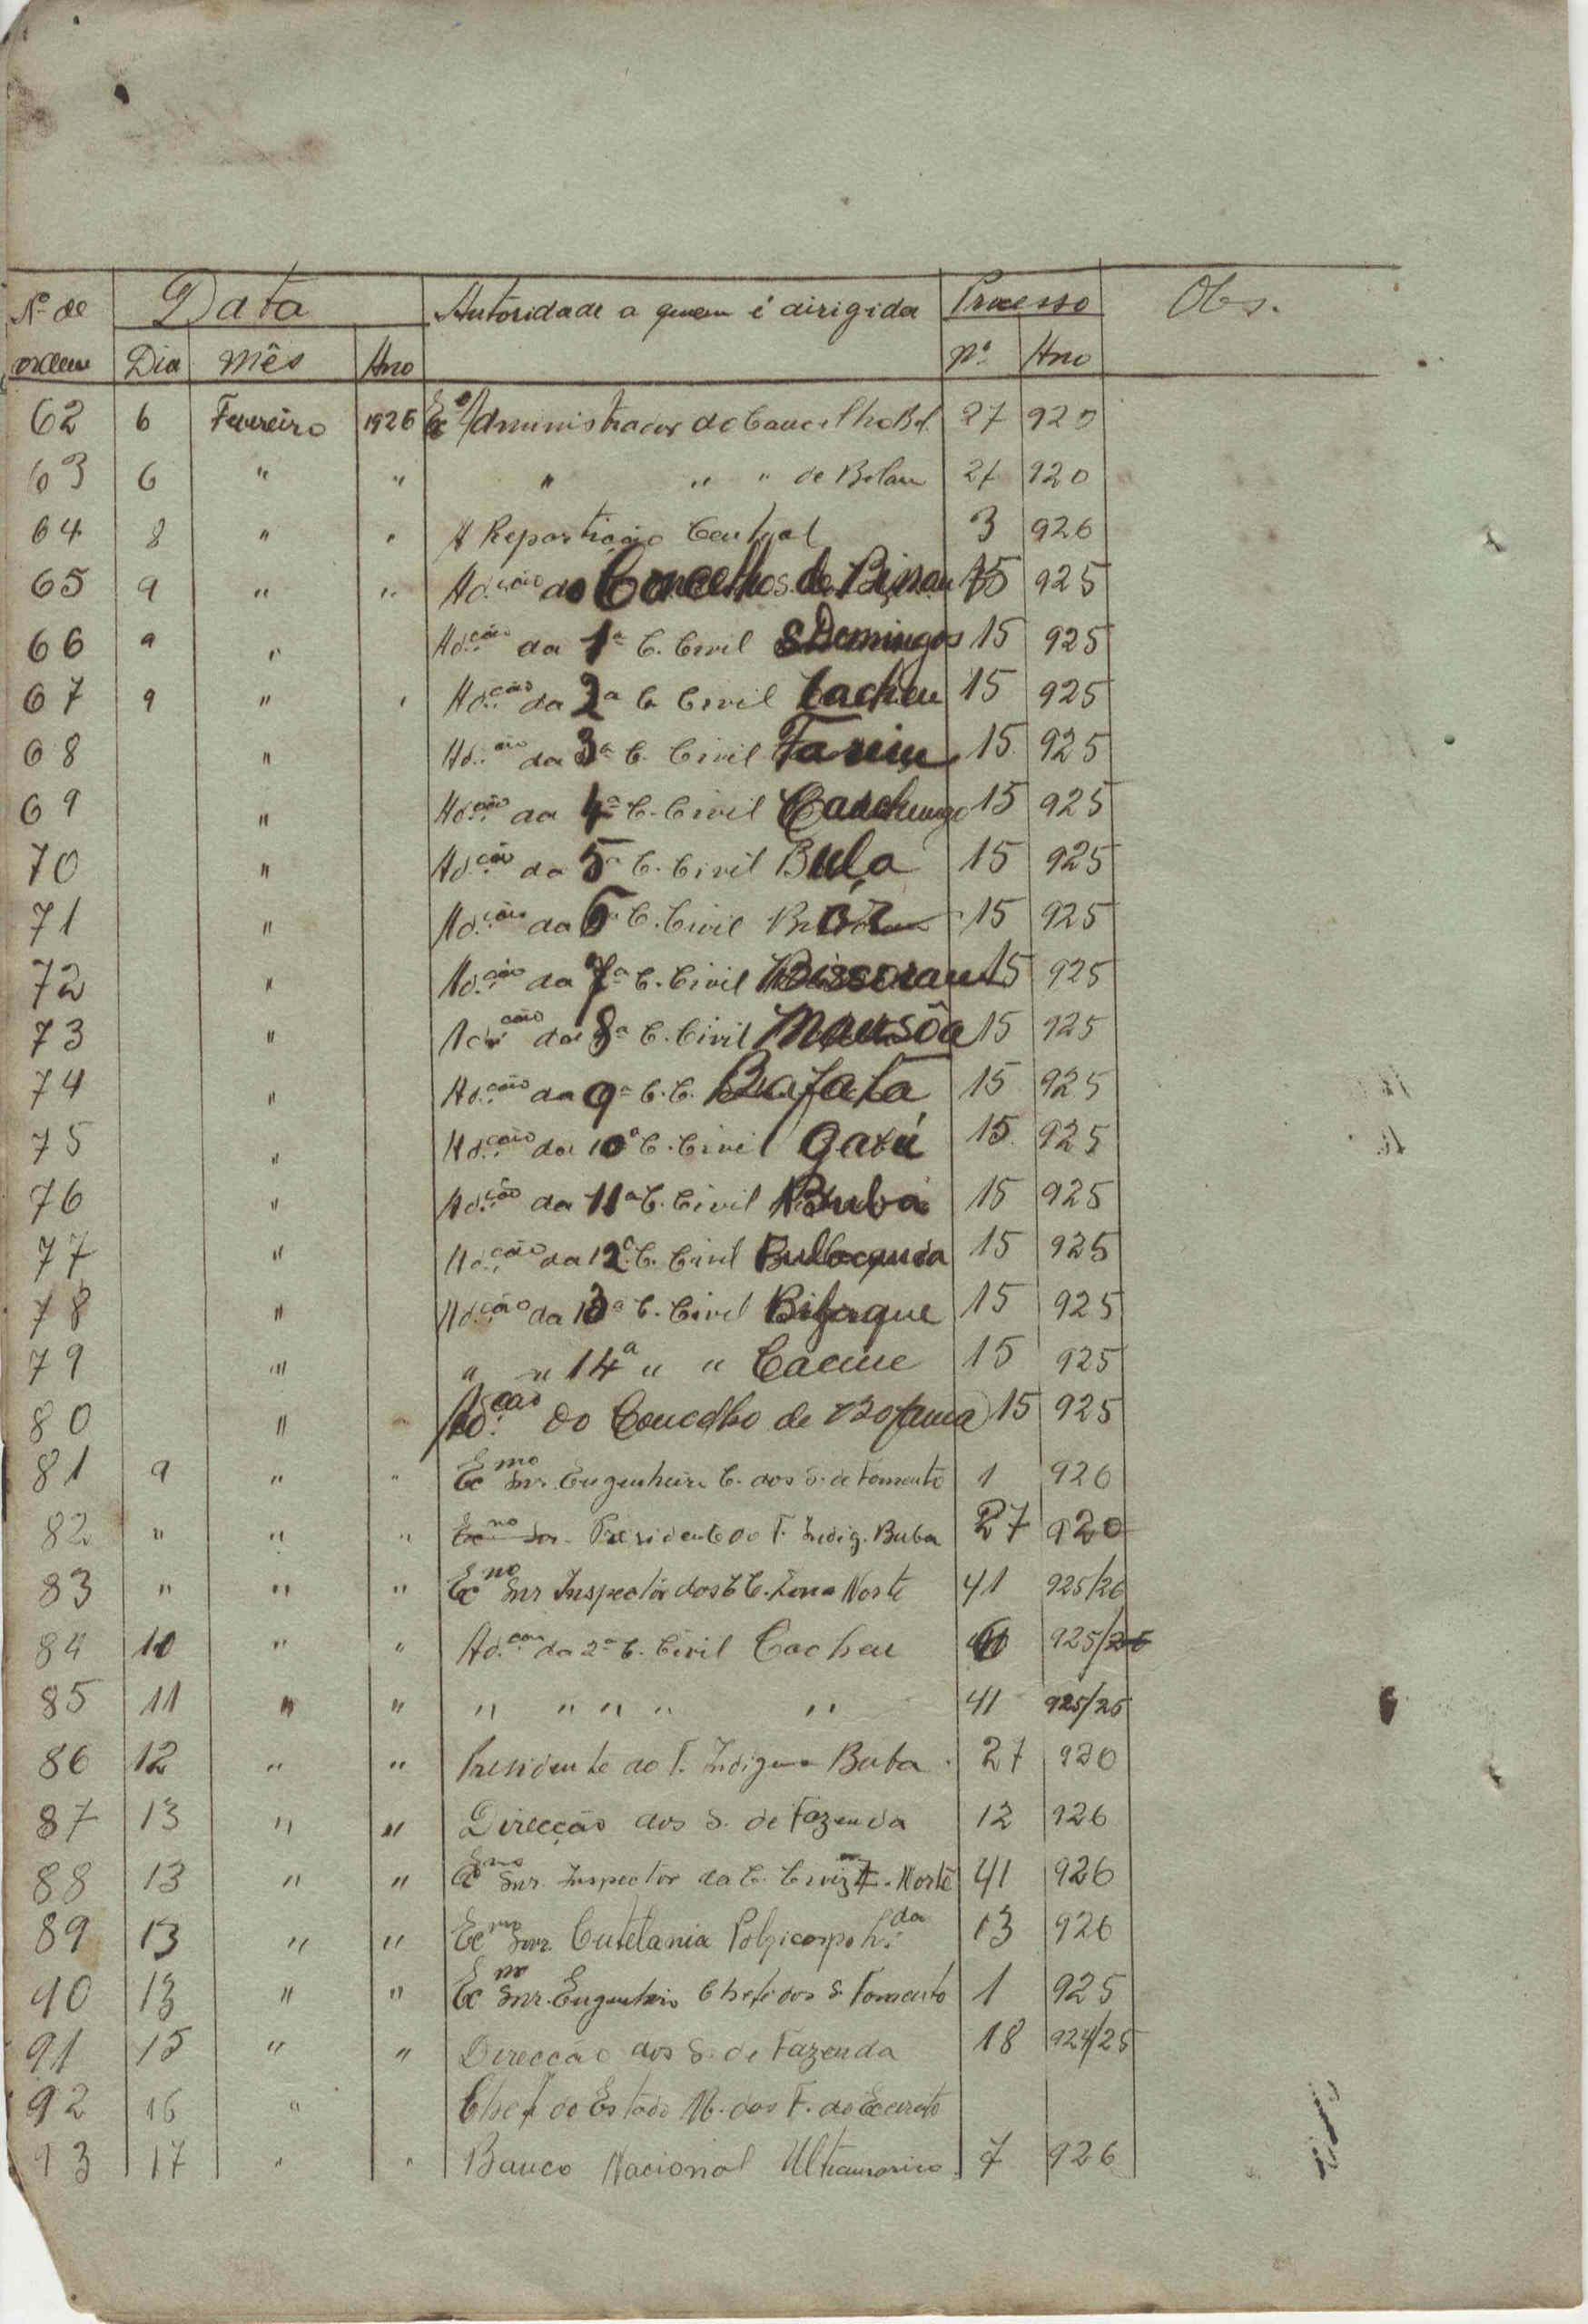 Nº de Data Autoridade a quem é dirigida Processo Obs.
ordem Dia Mês Ano Nº Ano
62 6 Fevereiro 1926 Administrador do Concelho Bol. 27 920
63 6 " " " " " de Bolama 27 920
64 8 " " A Repartição Central 3 926
65 9 " " Ad.ção do Concelhos de Bissau 15 925
66 9 " Ad.ção da 1ª C. Civil S Domingos 15 925
67 9 " " Ad.ção da 2ª C. Civil Cacheu 15 925
68 " Ad.ção da 3ª C. Civil Farim 15 925
69 " Ad.ção da 4ª C. Civil Canchungo 15 925
70 " Ad.ção da 5ª C. Civil Bula 15 925
71 " Ad.ção da 6ª C. Civil 15 925
72 " Ad.ção da 7ª C. Civil Bissoram 15 925
73 " Ad.ção da 8ª C. Civil Mansôa 15 925
74 " Ad.ção da 9ª C. C. Bafatá 15 925
75 " Ad.ção da 10ª C. Civil Gabú 15 925
76 " Ad.ção da 11ª C. Civil Buba 15 925
77 " Ad.ção da 12ª C. Civil 15 925
78 " Ad.ção da 13ª C. Civil 15 925
79 " " " 14ª " " Cacine 15 925
80 " Ad.ção do Concelho de Bolama 15 925
81 9 " " Ecmo Snr. Engenheiro C. dos S. de Fomento 1 926
82 " " " Presidente do T. Indig. Buba 27 920
83 " " " Ecmo Snr Inspector das C C. Zona Norte 41 925/26
84 10 " " Ad.ção da 2ª C. Civil Cacheu 925/26
85 11 " " " " " " " 41 925/26
86 12 " " Presidente do T. Indigena Buba 27 920
87 13 " " Direcção dos S. de Fazenda 12 926
88 13 " " Ecmo Snr. Inspector da C. Civis Z. Norte 41 926
89 13 " " Ecmo Snr. 13 926
90 13 " " Ecmo Snr. Engenheiro Chefe dos S. Fomento 1 925
91 15 " " Direcção dos S. de Fazenda 18 924/25
92 16 " Chef do Estado M. das F. do Ecercito
93 17 " " Banco Nacional Ultramarino 7 926